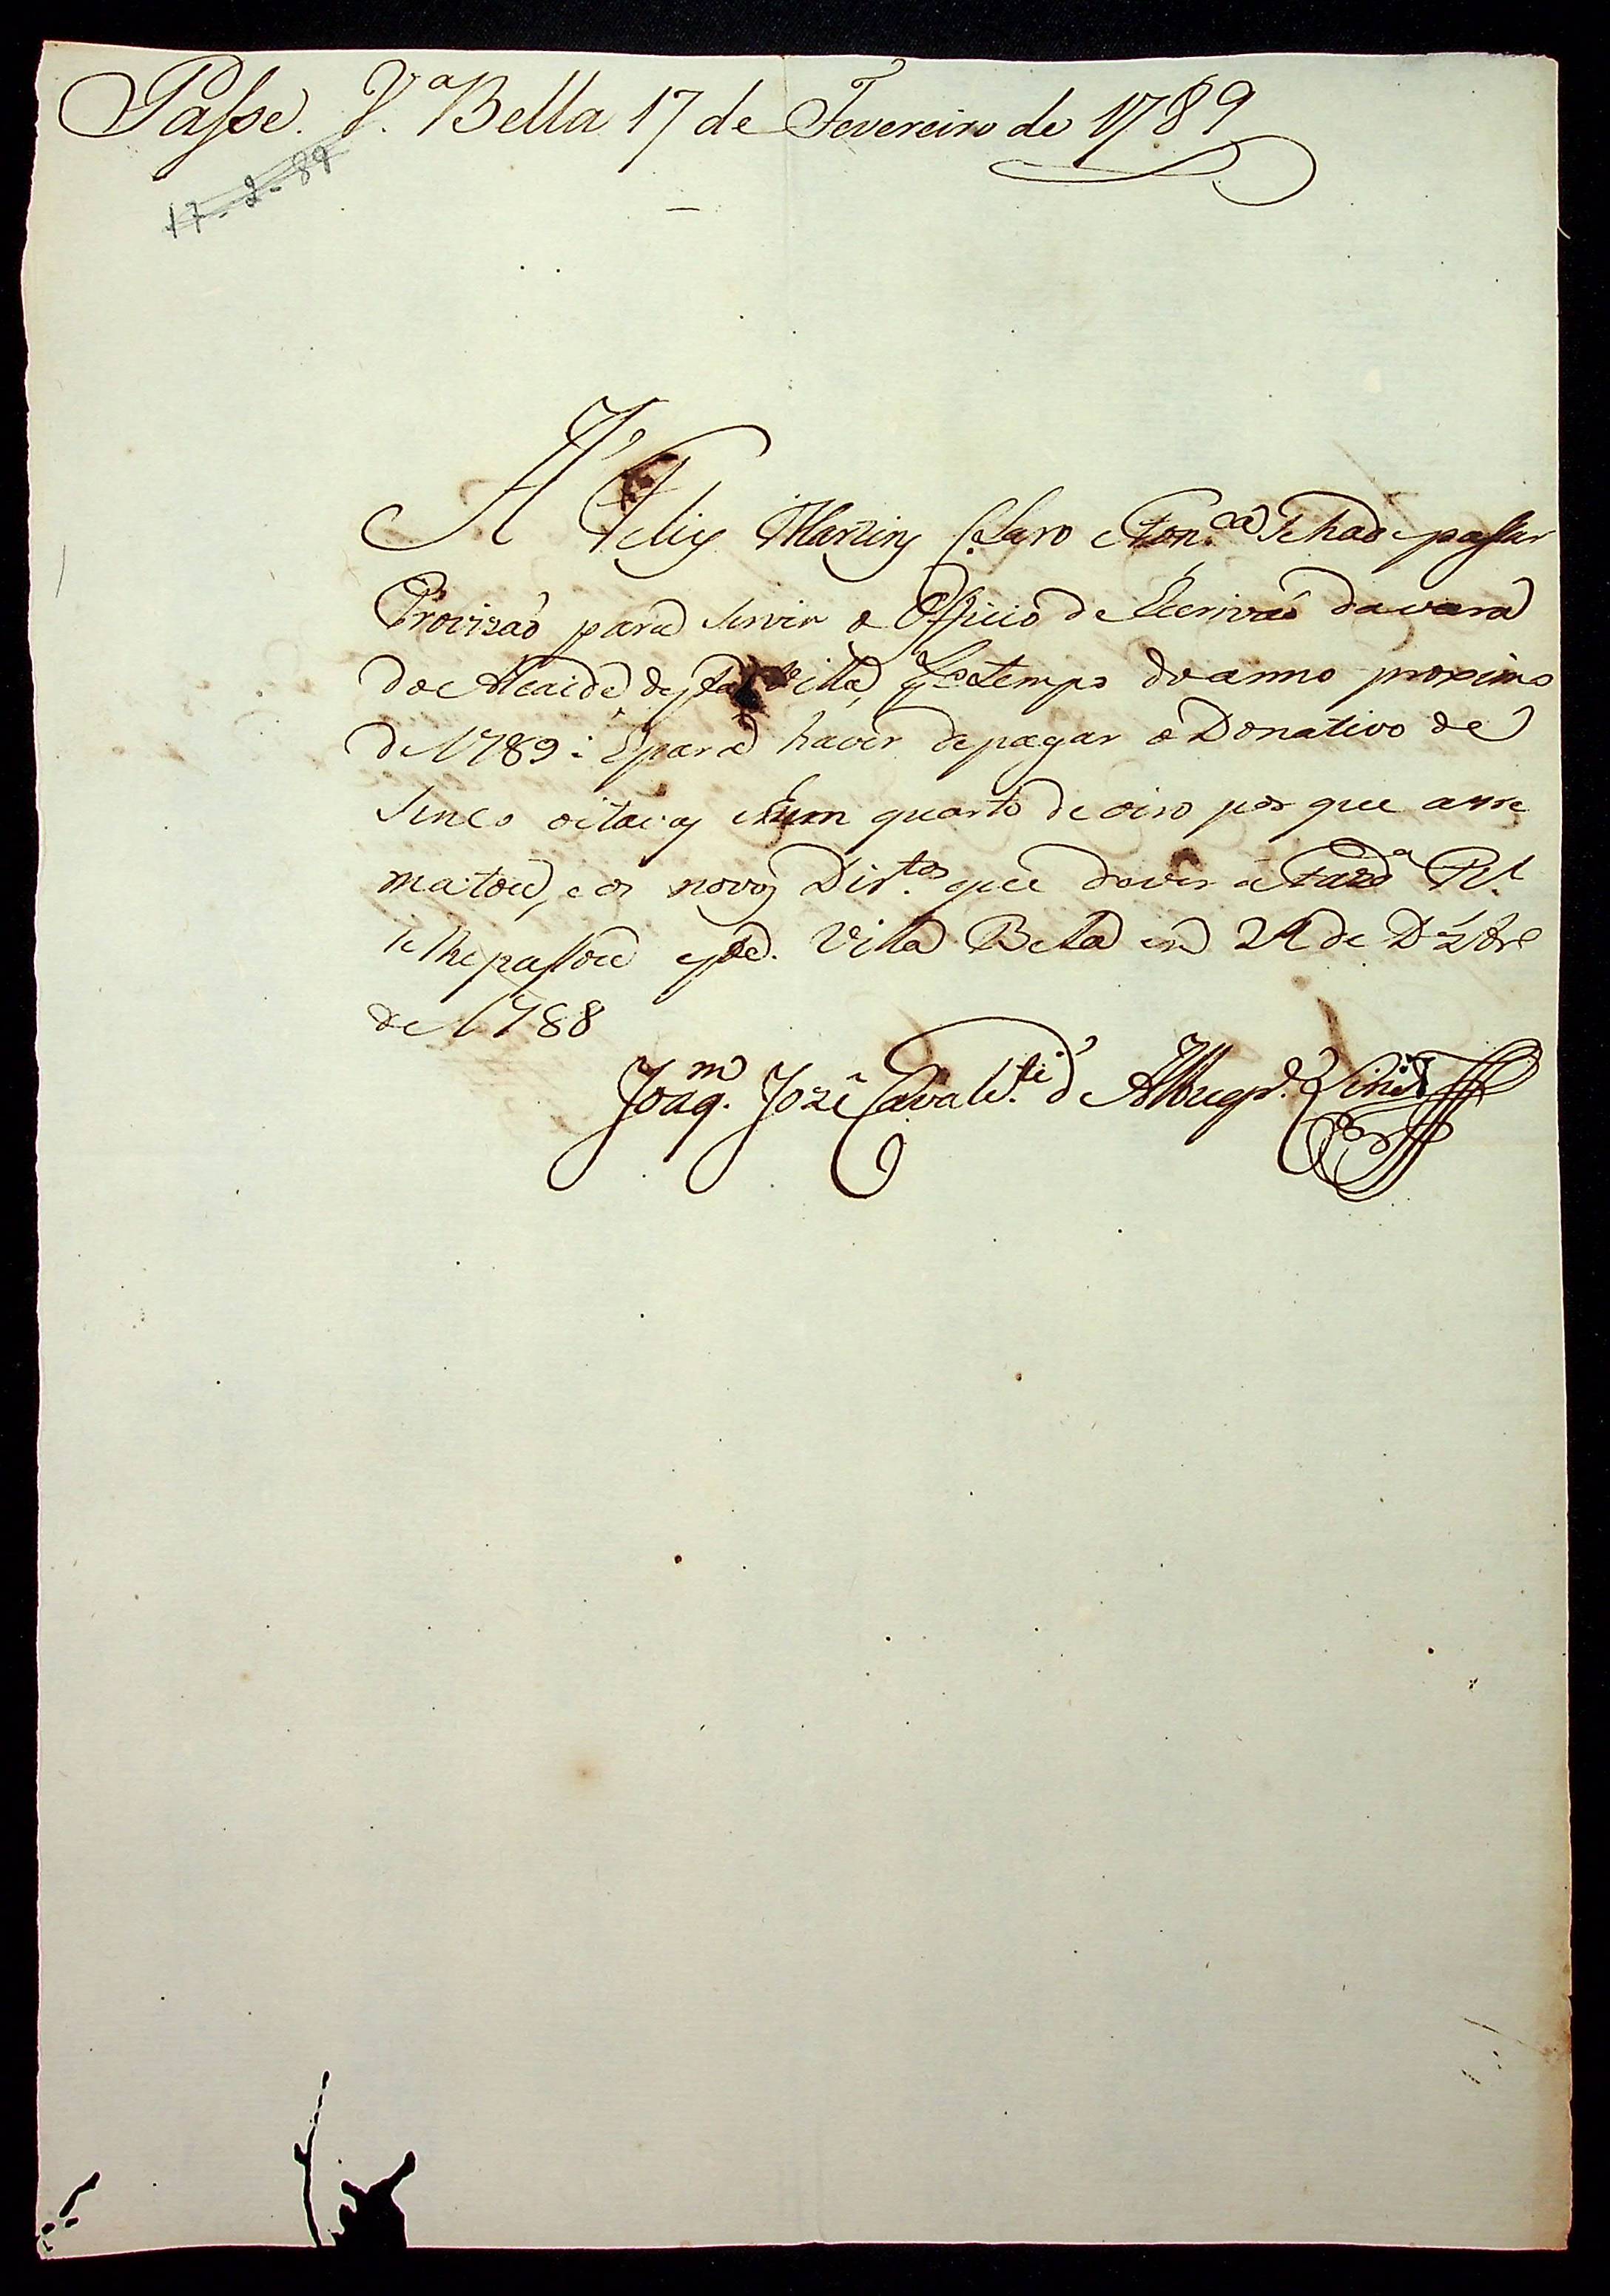 Passe. V.ª Bella 17 de Fevereiro de 1789
17-2-89
A Felis Martins Claro Fon.ca se hade passar
Provizaõ para servir o Officio de Escrivaõ da vara
do Alcaide desta Villa, tempo do anno proximo
de 1789: E para haver de pagar o Donativo de
sinco oitavas e hum quarto de oiro por que arre
matou, e os novos Dir.tos que dever â Fazd.ª R.l
se lhe passou esta. Villa Bella em 24 de Dezbr.o
de 1788
Joaq.m Jozê Cavalc.ti d'Albuqr.e